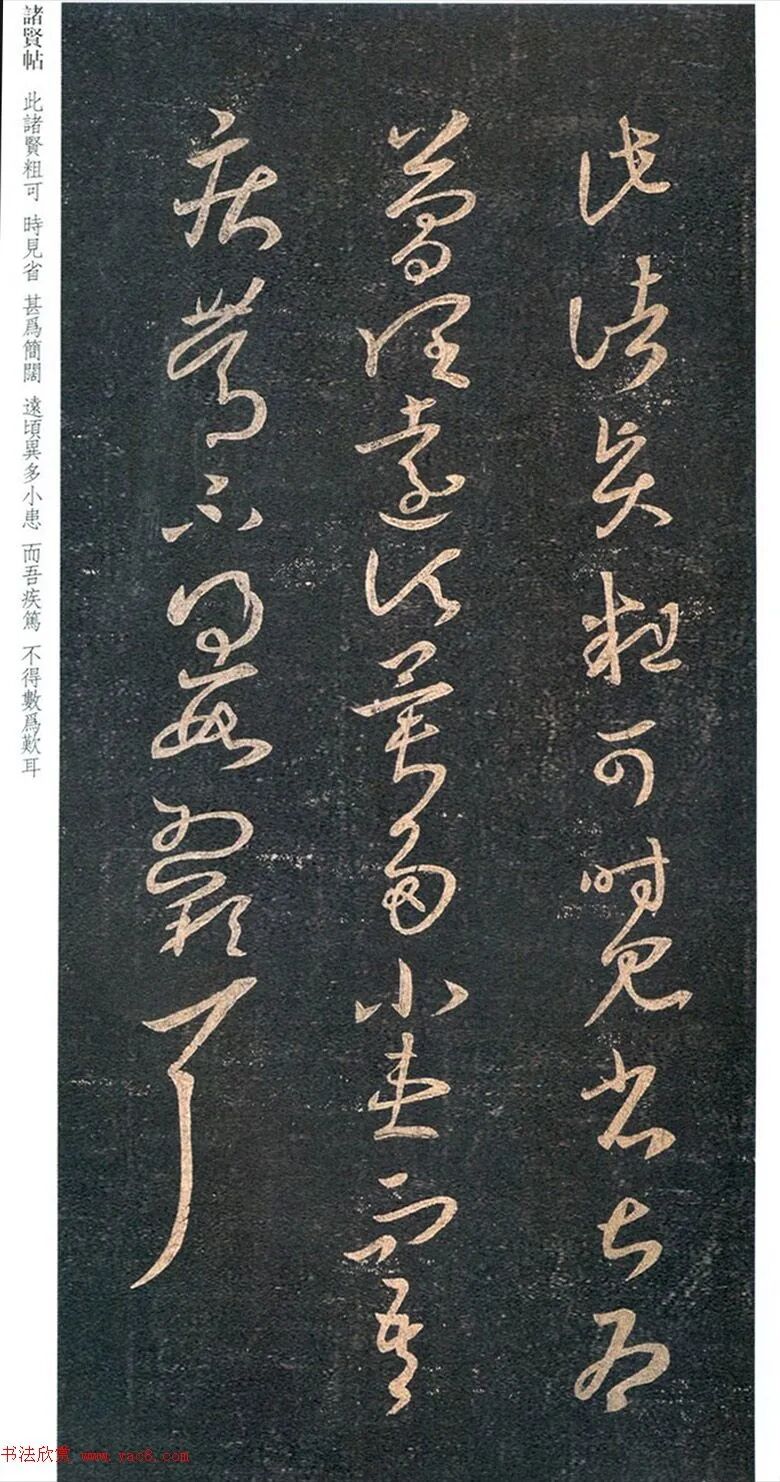 此諸賢粗可時見省甚爲
簡闊遠頃異多小患而吾
疾篤不得數爲歎耳
諸賢帖 此諸賢粗可 時見省 甚爲簡闊 遠頃異多小患 而吾疾篤 不得數爲歎耳
书法欣赏 www.yac8.com